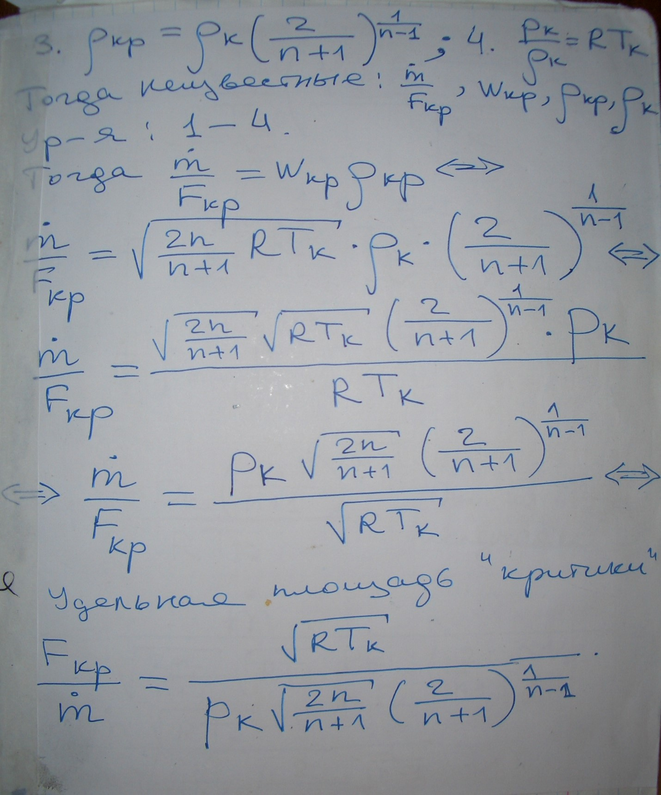 3. ρкр = ρк (2/(n+1))^(1/(n-1)); 4. pк/ρк = RTк
Тогда неизвестные: ṁ/Fкр, wкр, ρкр, ρк
Ур-я: 1 – 4.
Тогда ṁ/Fкр = wкр ρкр ⇔
ṁ/Fкр = √(2n/(n+1) RTк) · ρк · (2/(n+1))^(1/(n-1)) ⇔
ṁ/Fкр = (√(2n/(n+1)) √(RTк) (2/(n+1))^(1/(n-1)) · pк) / (RTк)
⇔ ṁ/Fкр = (pк √(2n/(n+1)) (2/(n+1))^(1/(n-1))) / √(RTк) ⇔
Удельная площадь "критики"
Fкр/ṁ = √(RTк) / (pк √(2n/(n+1)) (2/(n+1))^(1/(n-1))).